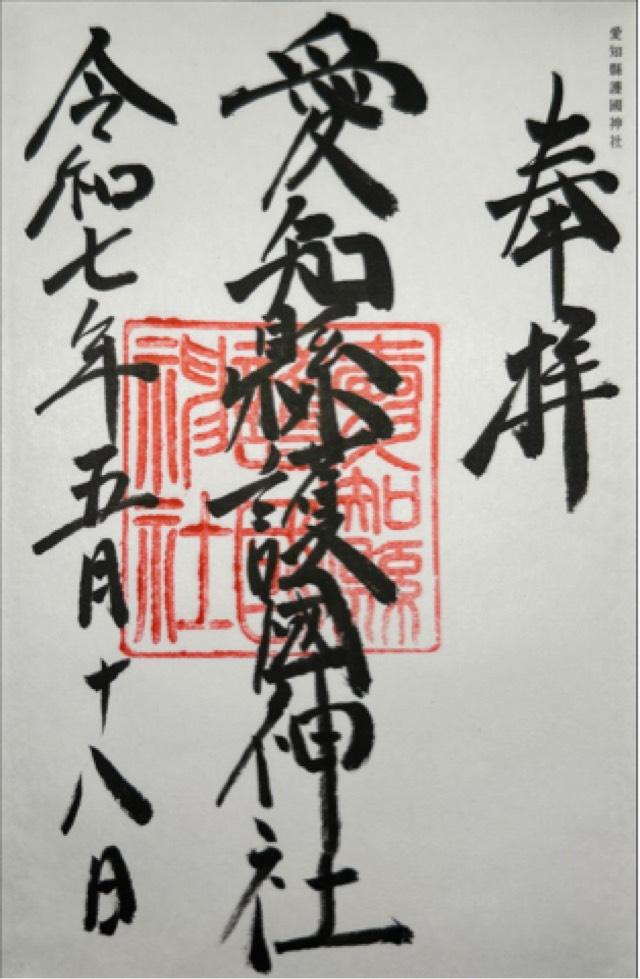 愛知縣護國神社
奉拝
愛知縣護國神社
令和七年五月十八日
愛知縣
護國
神社